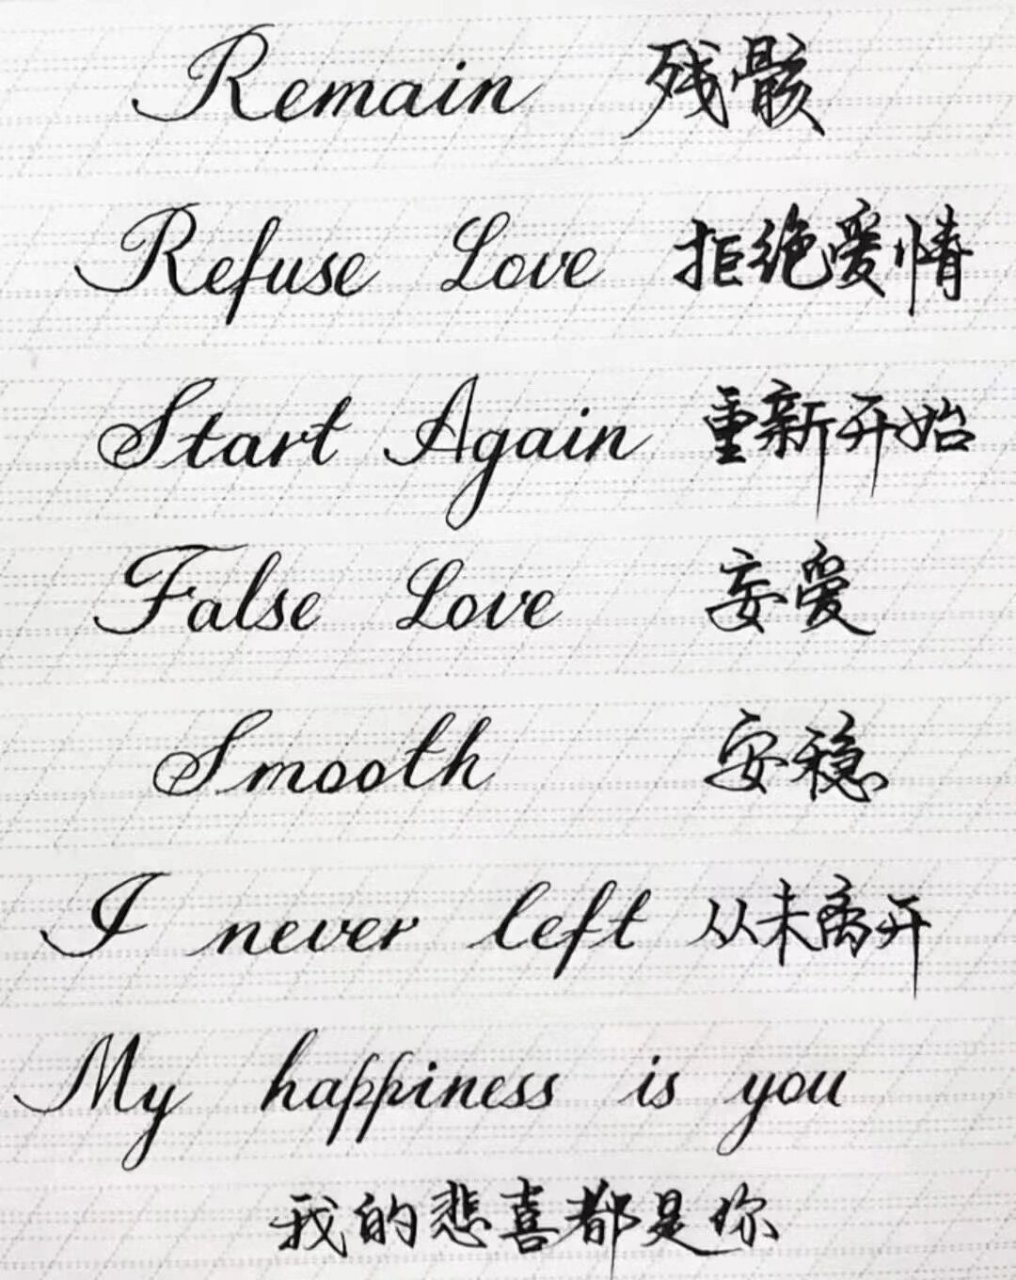 Remain 残骸
Refuse Love 拒绝爱情
Start Again 重新开始
False Love 妄爱
Smooth 安稳
I never left 从未离开
My happiness is you
我的悲喜都是你